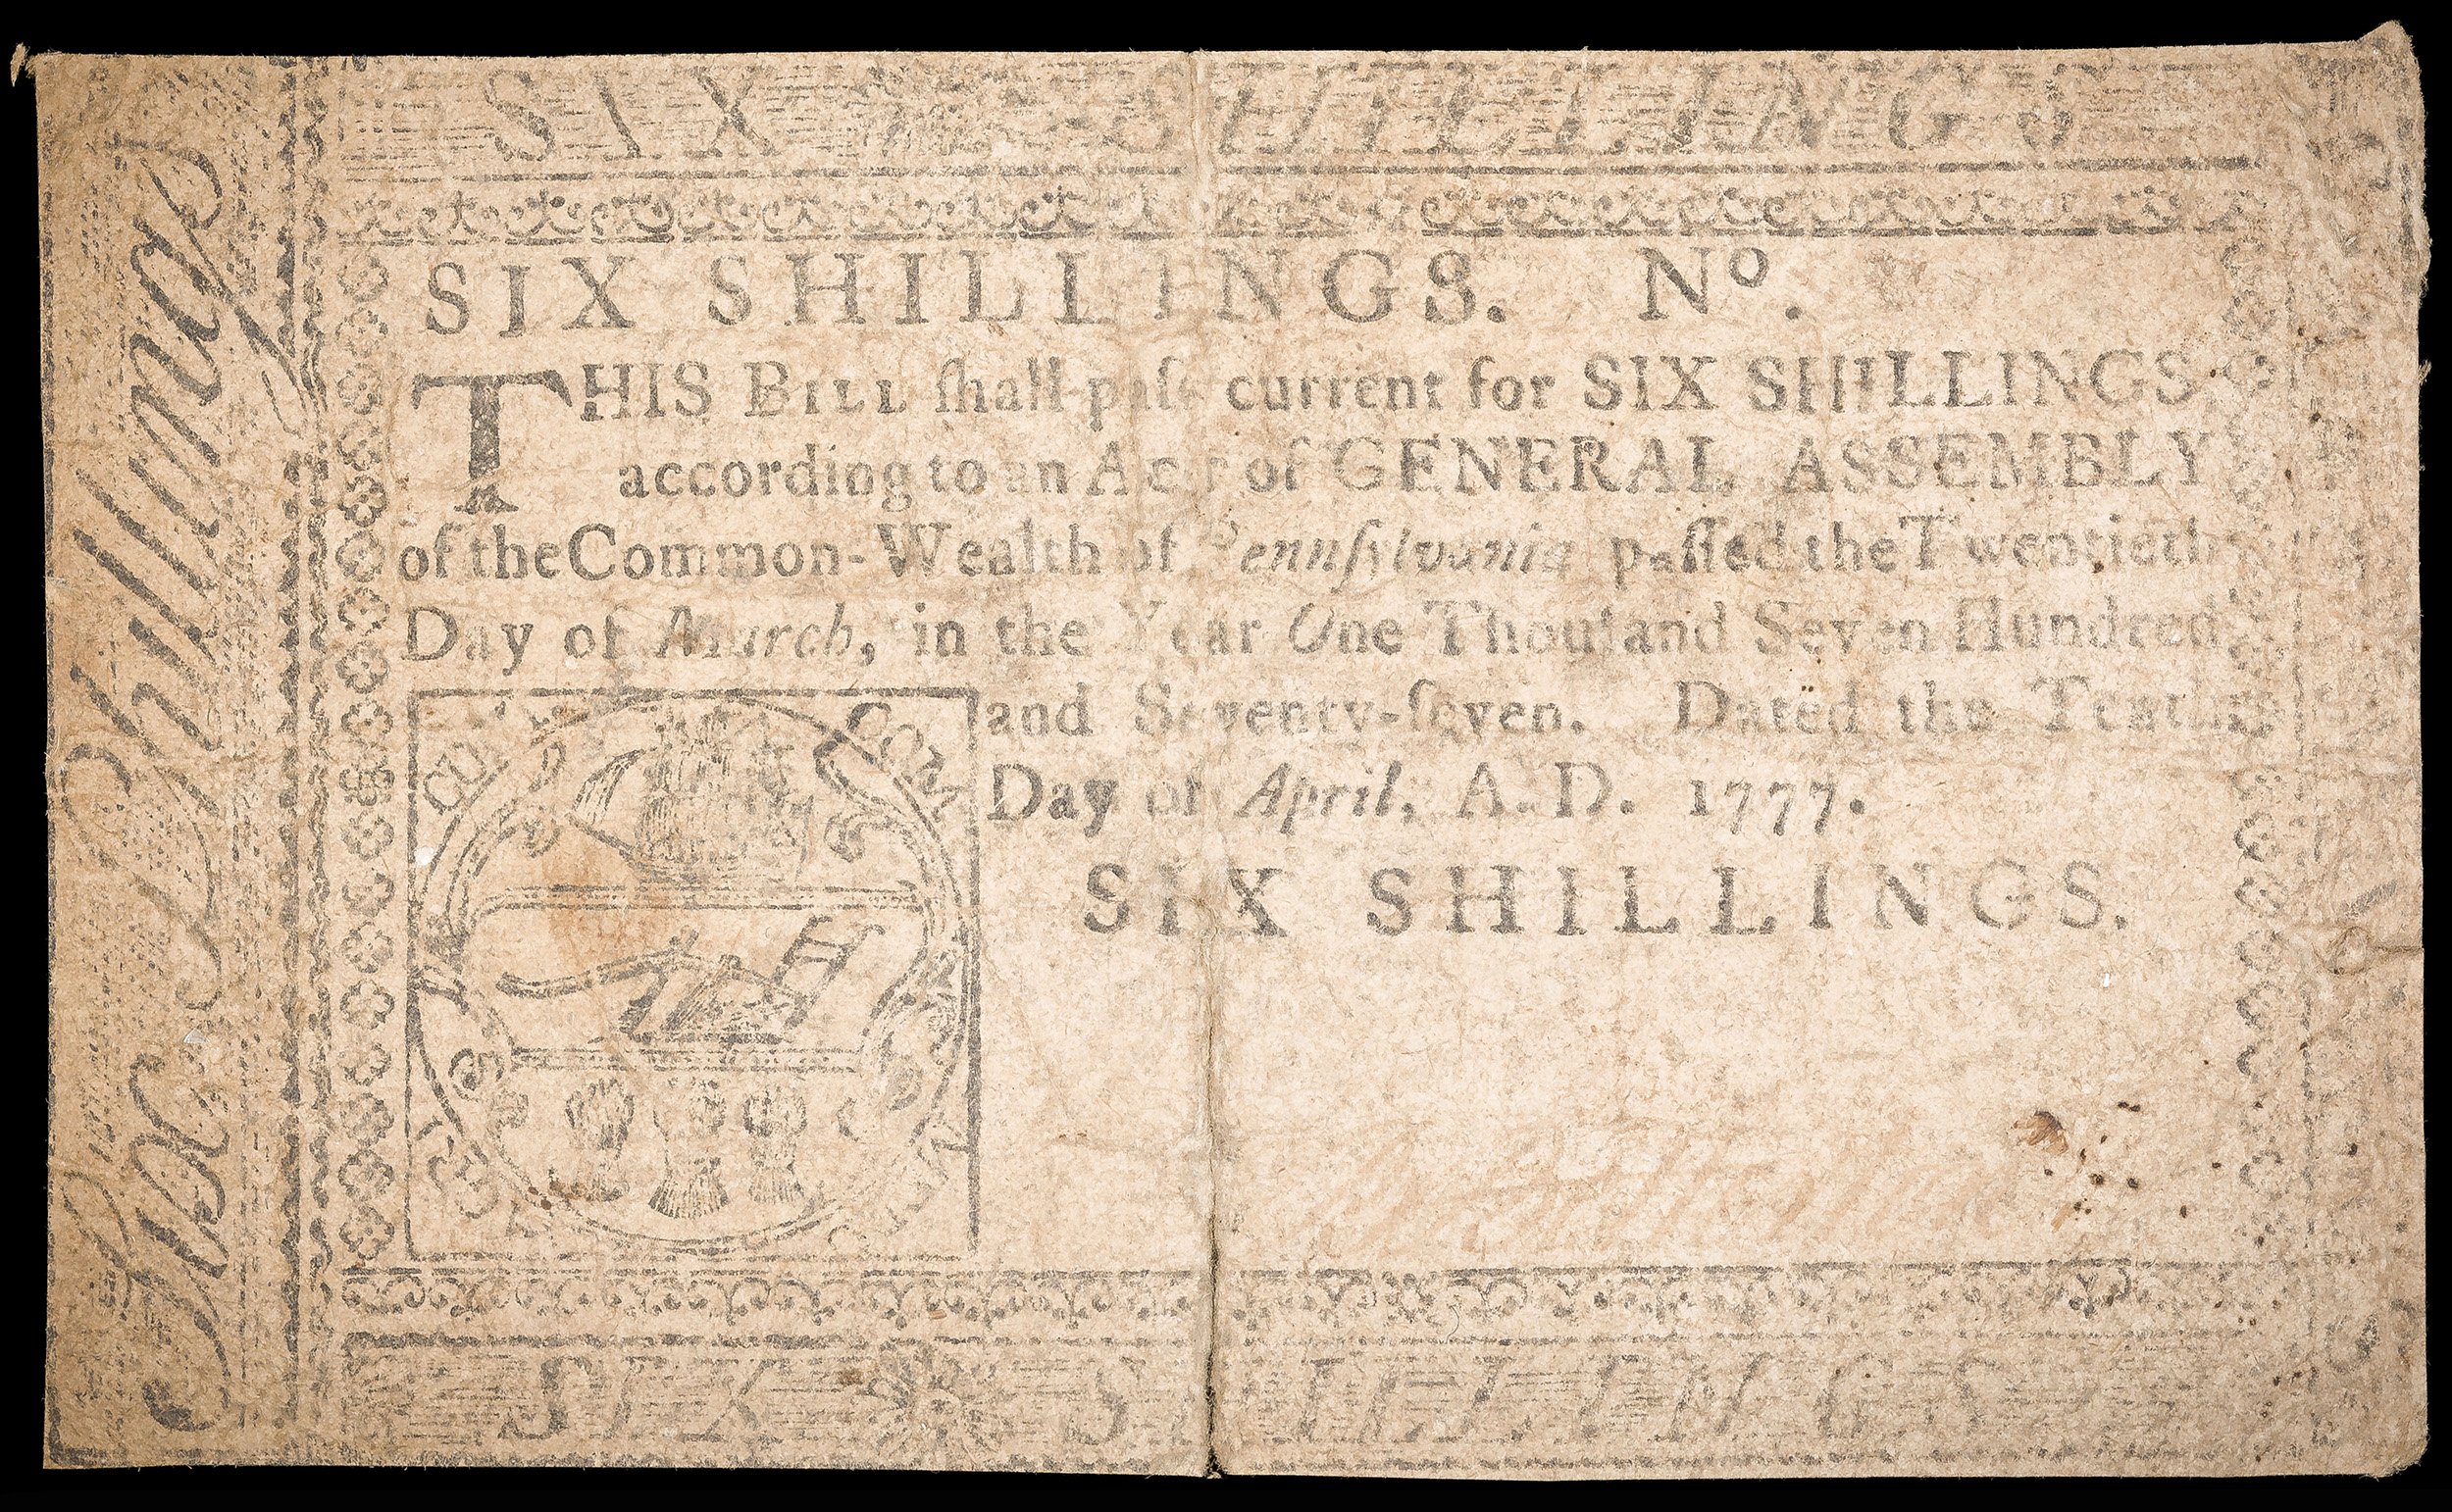 SIX SHILLINGS
SIX SHILLINGS. Nº.
THIS BILL ſhall paſs current for SIX SHILLINGS
according to an Act of GENERAL ASSEMBLY
of the Common-Wealth of Pennſylvania paſſed the Twentieth
Day of March, in the Year One Thouſand Seven Hundred
and Seventy-ſeven. Dated the Tenth
Day of April, A. D. 1777.
SIX SHILLINGS.
SIX SHILLINGS
Six Shillings